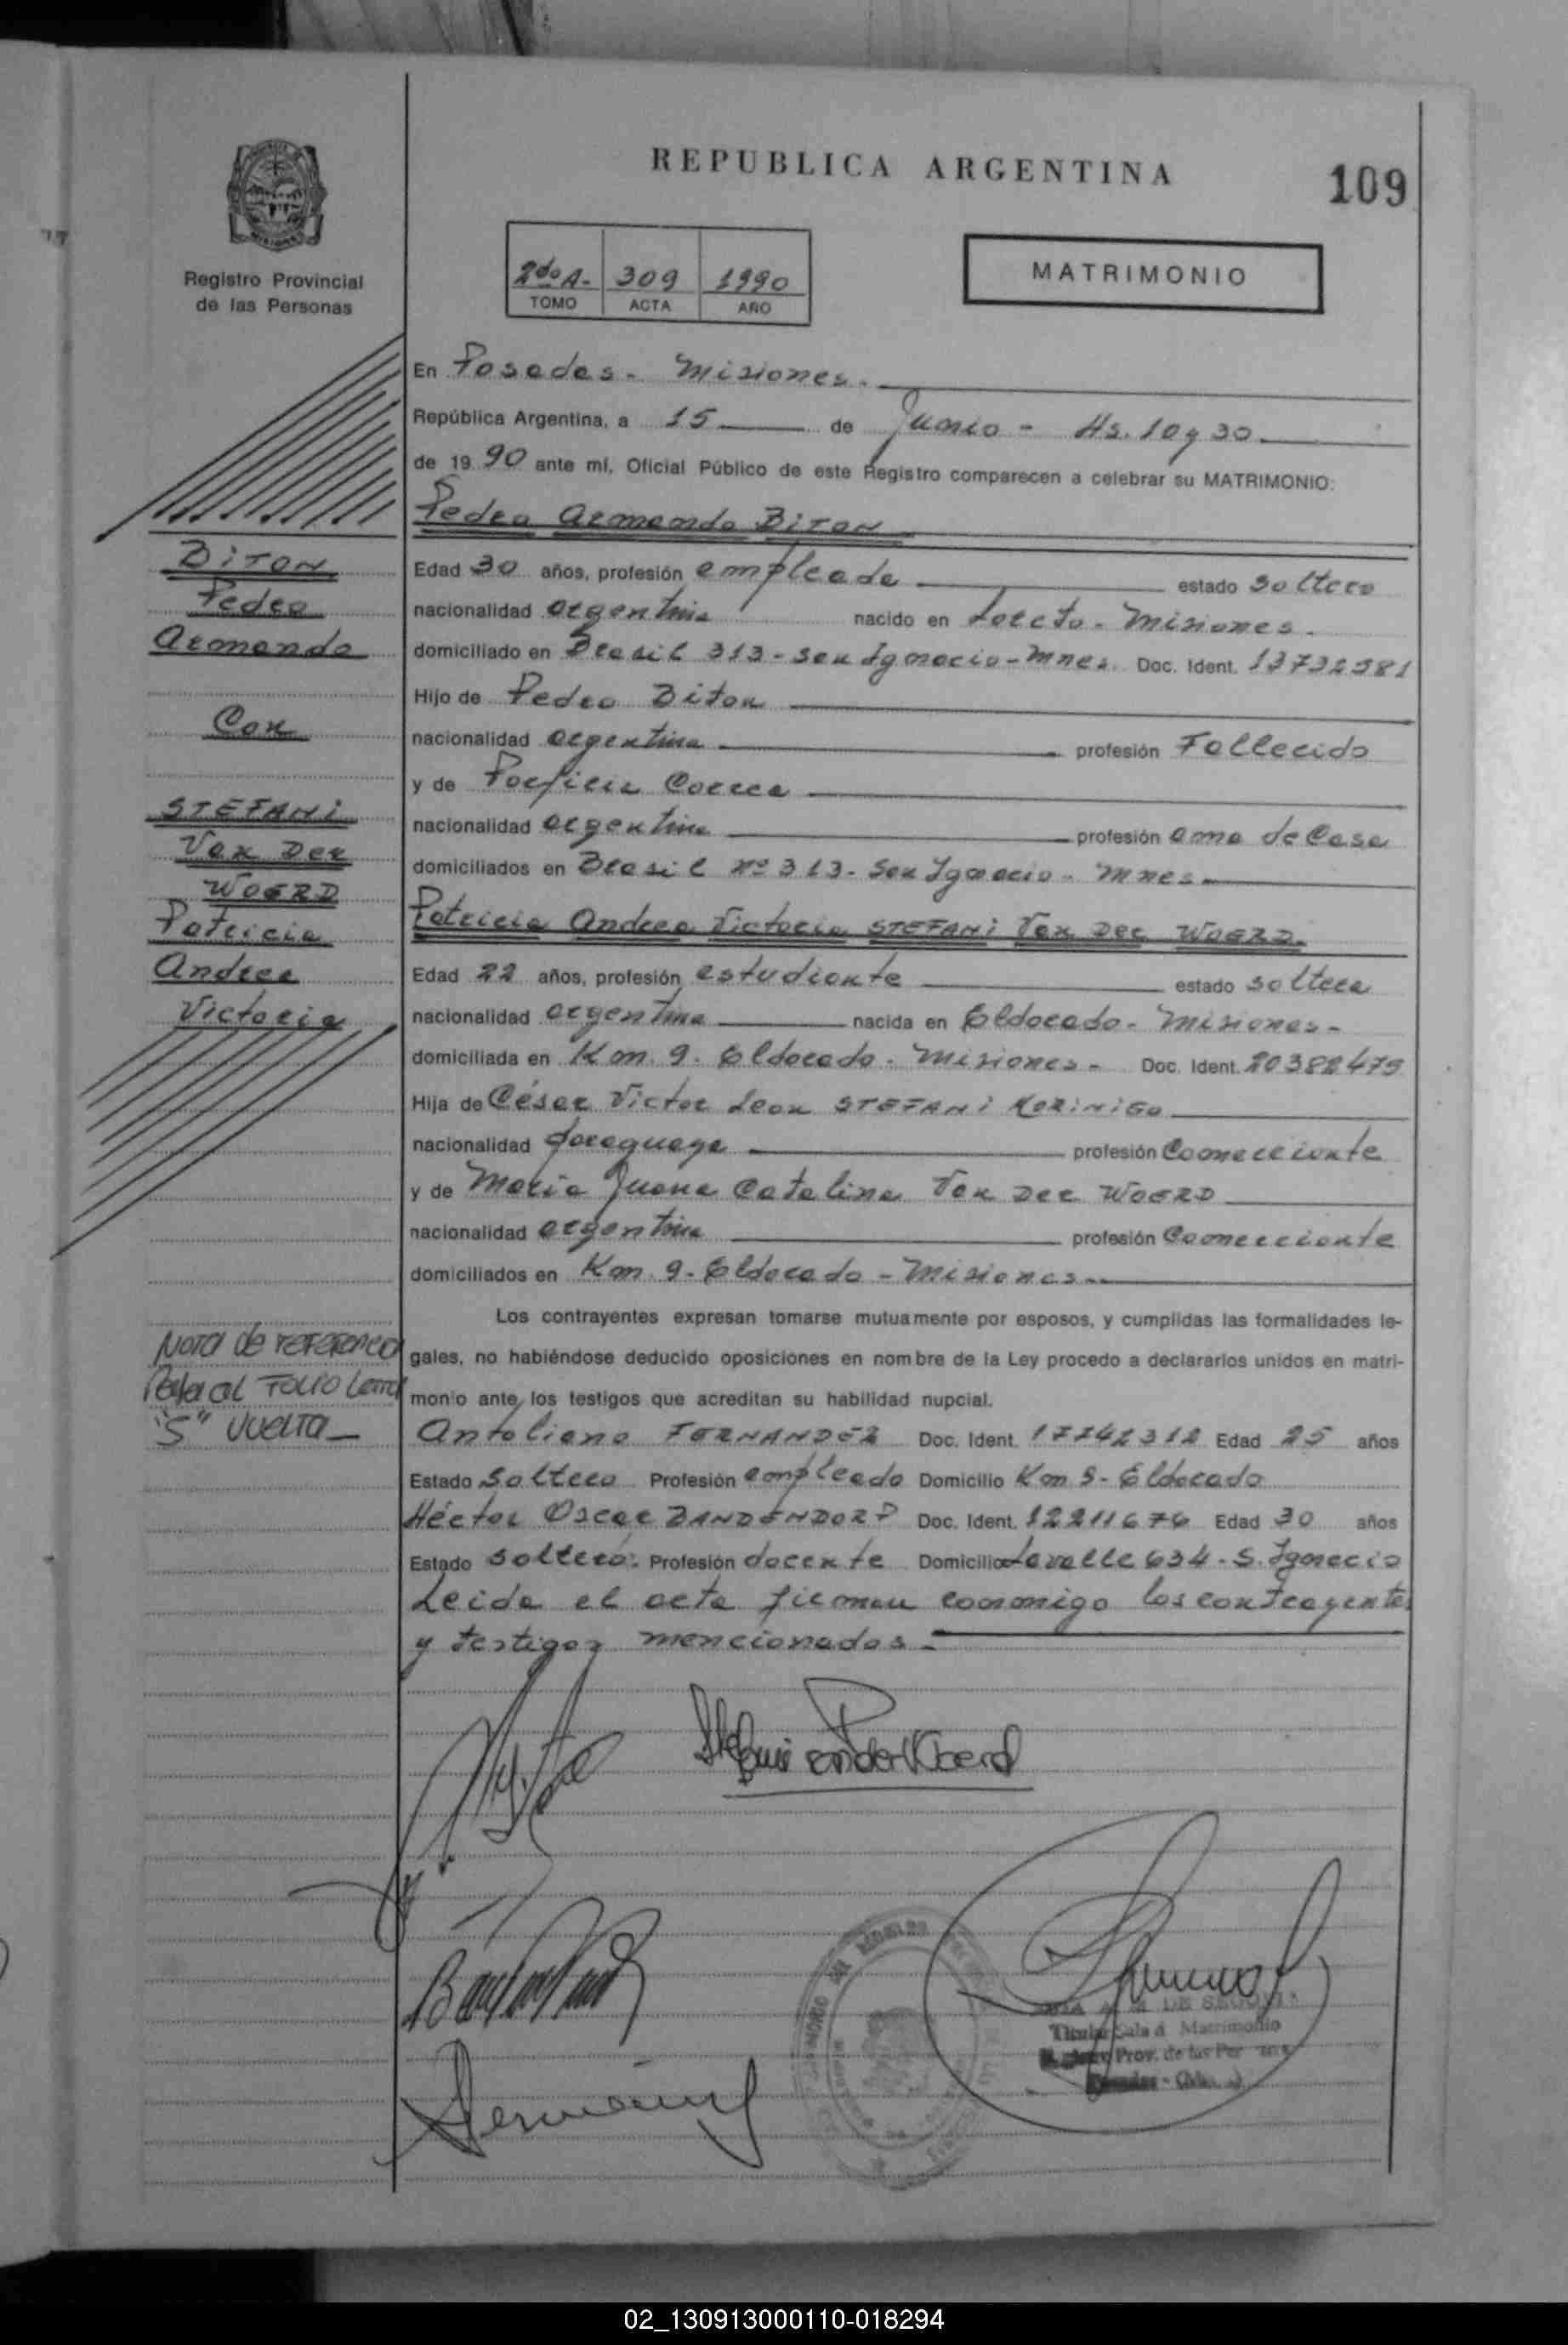 REPUBLICA ARGENTINA
109
Registro Provincial
de las Personas
2do A- 309 1990
TOMO ACTA AÑO
MATRIMONIO
En Posadas - Misiones.
República Argentina, a 15 de Junio - Hs. 10 y 30
de 1990 ante mí, Oficial Público de este Registro comparecen a celebrar su MATRIMONIO:
Pedro Armando BiTON
Edad 30 años, profesión empleado estado soltero
nacionalidad argentina nacido en Loreto - Misiones.
domiciliado en Brasil 313 - San Ignacio - Mnes. Doc. Ident. 13732581
Hijo de Pedro Biton
nacionalidad argentina profesión Fallecido
y de Porficia Correa
nacionalidad argentina profesión ama de Casa
domiciliados en Brasil nº 313 - San Ignacio - Mnes
Patricia Andrea Victoria STEFANi Van Der WOERD.
Edad 22 años, profesión estudiante estado soltera
nacionalidad argentina nacida en Eldorado - Misiones -
domiciliada en Km. 9 - Eldorado - Misiones - Doc. Ident. 20382479
Hija de César Victor Leon STEFANi MORiNiGO
nacionalidad paraguaya profesión Comerciante
y de María Juana Catalina Van Der WOERD
nacionalidad argentina profesión Comerciante
domiciliados en Km. 9 - Eldorado - Misiones
Los contrayentes expresan tomarse mutuamente por esposos, y cumplidas las formalidades le-
gales, no habiéndose deducido oposiciones en nombre de la Ley procedo a declararlos unidos en matri-
monio ante los testigos que acreditan su habilidad nupcial.
Antoliano FERNANDEZ Doc. Ident. 17742312 Edad 25 años
Estado soltero Profesión empleado Domicilio Km 9 - Eldorado
Héctor Oscar BANDENDORP Doc. Ident. 12211676 Edad 30 años
Estado soltero. Profesión docente Domicilio Lavalle 634 - S. Ignacio
Leida el acta firman conmigo los contrayentes
y testigos mencionados -
BiTON
Pedro
Armando
Con
STEFANi
Van Der
WOERD
Patricia
Andrea
Victoria
Nota de referencia
al Folio Letra
"S" Vuelta
Stefani van der Woerd
DE SEGOVIA
Titular Sala d Matrimonio
Prov. de las Per
02_130913000110-018294